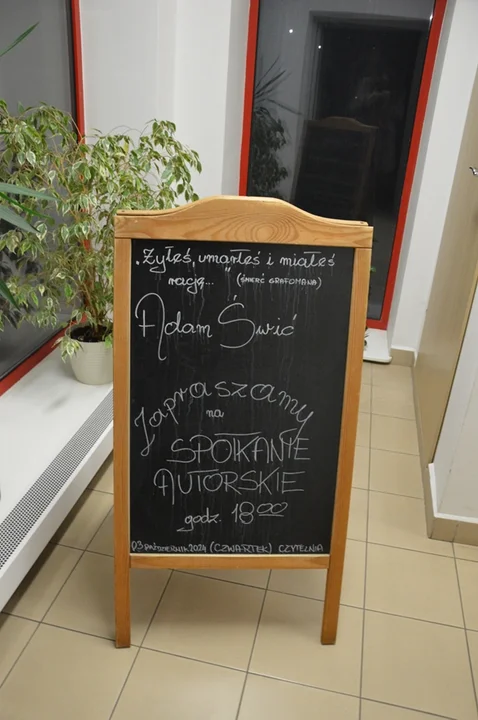 „Żyłeś, umarłeś i miałeś
rację..." (ŚMIERĆ GRAFOMANA)
Adam Świć
Zapraszamy
na
SPOTKANIE
AUTORSKIE
godz. 18⁰⁰
03 PAŹDZIERNIKA 2024 (CZWARTEK) CZYTELNIA